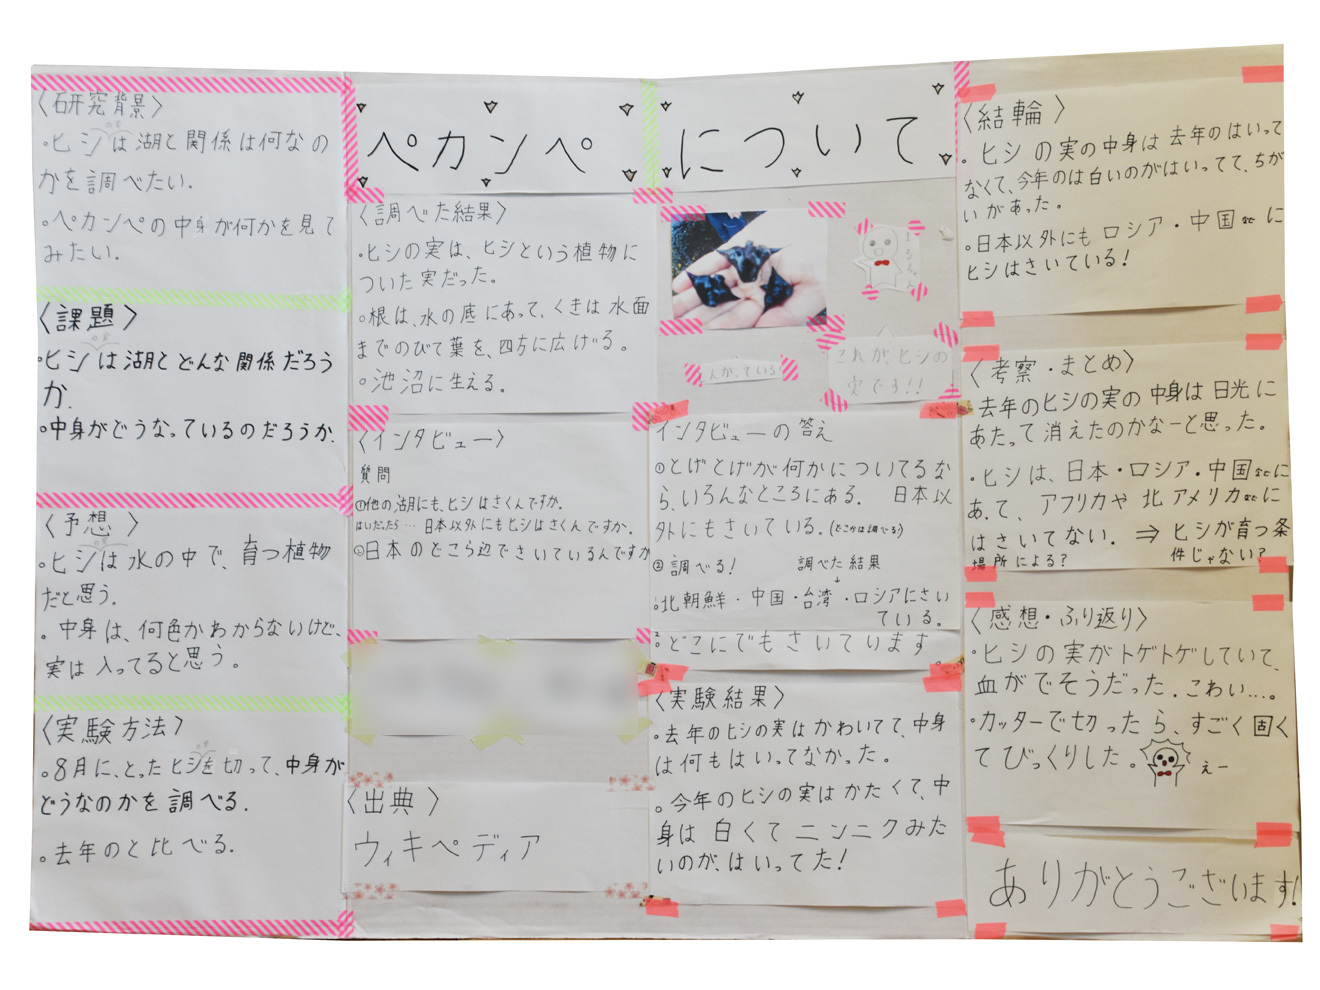 〈研究背景〉
・ヒシの実は湖と関係は何なの
かを調べたい.
・ペカンペの中身が何かを見て
みたい.
〈課題〉
・ヒシの実は湖とどんな関係だろう
か.
・中身がどうなっているのだろうか.
〈予想〉
・ヒシの実は水の中で、育つ植物
だと思う.
・中身は、何色かわからないけど、
実は入ってると思う。
〈実験方法〉
・8月に、とったヒシの実を切って、中身が
どうなのかを調べる.
・去年のと比べる.
ペカンペについて
〈調べた結果〉
・ヒシの実は、ヒシという植物に
ついた実だった。
・根は、水の底にあって、くきは水面
までのびて葉を、四方に広げる。
・池沼に生える。
〈インタビュー〉
質問
①他の湖にも、ヒシはさくんですか.
はいだったら…日本以外にもヒシはさくんですか.
②日本のどこら辺でさいているんですか
〈出典〉
ウィキペディア
これが、ヒシの
実です!!
インタビューの答え
①とげとげが何かについてるな
ら、いろんなところにある. 日本以
外にもさいている.(どこかは調べる)
②調べる! 調べた結果
↓
・北朝鮮・中国・台湾・ロシアにさい
ている.
②どこにでもさいています。
〈実験結果〉
・去年のヒシの実はかわいてて、中身
は何もはいってなかった。
・今年のヒシの実はかたくて、中
身は白くてニンニクみた
いのが、はいってた!
〈結輪〉
・ヒシの実の中身は去年のはいって
なくて、今年のは白いのがはいってて、ちが
いがあった。
・日本以外にもロシア・中国などに
ヒシはさいている!
〈考察・まとめ〉
・去年のヒシの実の中身は日光に
あたって消えたのかなーと思った。
・ヒシは、日本・ロシア・中国などに
あって、アフリカや北アメリカなどに
はさいてない. ⇒ヒシが育つ条
場所による? 件じゃない?
〈感想・ふり返り〉
・ヒシの実がトゲトゲしていて、
血がでそうだった.こわい…。
・カッターで切ったら、すごく固く
てびっくりした。
えー
ありがとうございます!